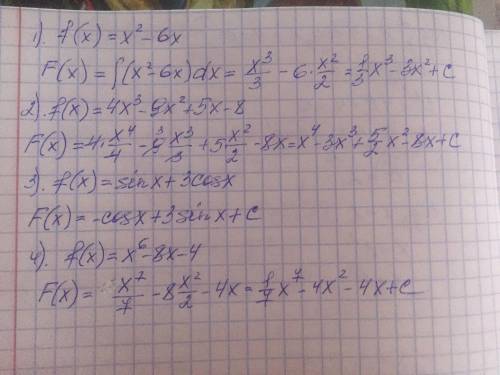 1). f(x) = x² - 6x
F(x) = ∫(x² - 6x)dx = x³/3 - 6·x²/2 = 1/3 x³ - 3x² + C
2). f(x) = 4x³ - 9x² + 5x - 8
F(x) = 4·x⁴/4 - 9 x³/3 + 5 x²/2 - 8x = x⁴ - 3x³ + 5/2 x² - 8x + C
3). f(x) = sinx + 3cosx
F(x) = -cosx + 3sinx + C
4). f(x) = x⁶ - 8x - 4
F(x) = x⁷/7 - 8 x²/2 - 4x = 1/7 x⁷ - 4x² - 4x + C